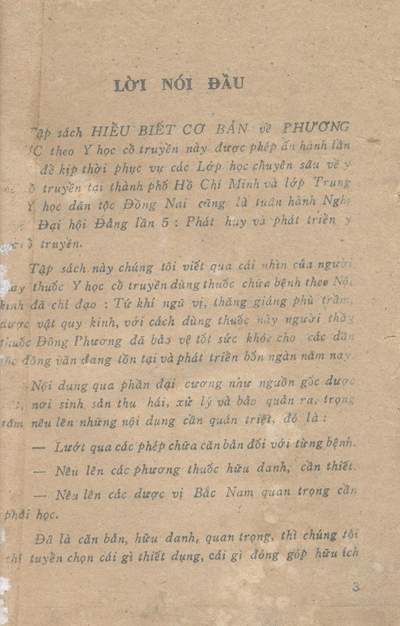 LỜI NÓI ĐẦU
Tập sách HIỂU BIẾT CƠ BẢN về PHƯƠNG
ỢC theo Y học cổ truyền này được phép ấn hành lần
để kịp thời phục vụ các Lớp học chuyên sâu về y
ổ truyền tại thành phố Hồ Chí Minh và lớp Trung
Y học dân tộc Đồng Nai cũng là tuân hành Nghị
Đại hội Đảng lần 5 : Phát huy và phát triển y
cổ truyền.
Tập sách này chúng tôi viết qua cái nhìn của người
hay thuốc Y học cổ truyền dùng thuốc chữa bệnh theo Nội
kinh đã chỉ đạo : Tứ khí ngũ vị, thăng giáng phù trầm,
dược vật quy kinh, với cách dùng thuốc này người thầy
thuốc Đông Phương đã bảo vệ tốt sức khỏe cho các dân
tộc đông vẫn đang tồn tại và phát triển bốn ngàn năm nay.
Nội dung qua phần đại cương như nguồn gốc dược
nơi sinh sản thu hái, xử lý và bảo quản ra, trọng
tâm nêu lên những nội dung cần quán triệt, đó là :
— Lướt qua các phép chữa căn bản đối với từng bệnh.
— Nêu lên các phương thuốc hữu danh, cần thiết.
— Nêu lên các dược vị Bắc Nam quan trọng cần
phải học.
Đã là căn bản, hữu danh, quan trọng, thì chúng tôi
chỉ tuyển chọn cái gì thiết dụng, cái gì đóng góp hữu ích
3